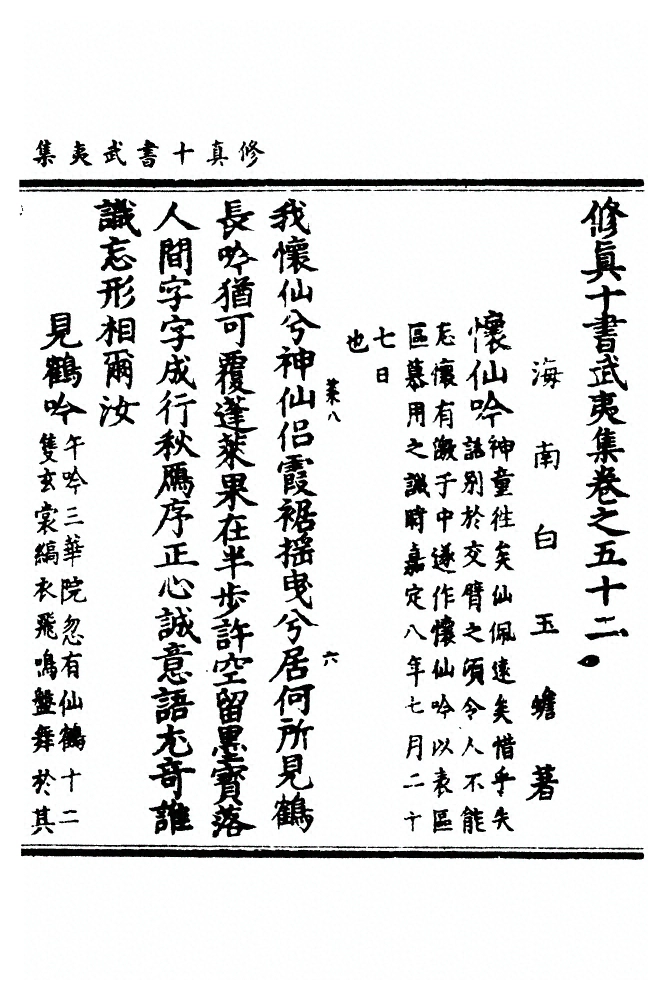 修真十書武夷集
修眞十書武夷集卷之五十二
海南白玉蟾著
懷仙吟神童徃矣仙佩遠矣惜乎失
話別於交臂之頃令人不能
忘懷有激于中遂作懷仙吟以表區
區慕用之誠時嘉定八年七月二十
七日
也
菜八 六
我懷仙兮神仙侣霞裾摇曳兮居何所見鶴
長吟猶可覆蓬萊果在半步許空留墨寳落
人間字字成行秋鴈序正心誠意語尤竒誰
識忘形相爾汝
見鶴吟午吟三華院忽有仙鶴十二
隻玄裳縞衣飛鳴盤舞於其